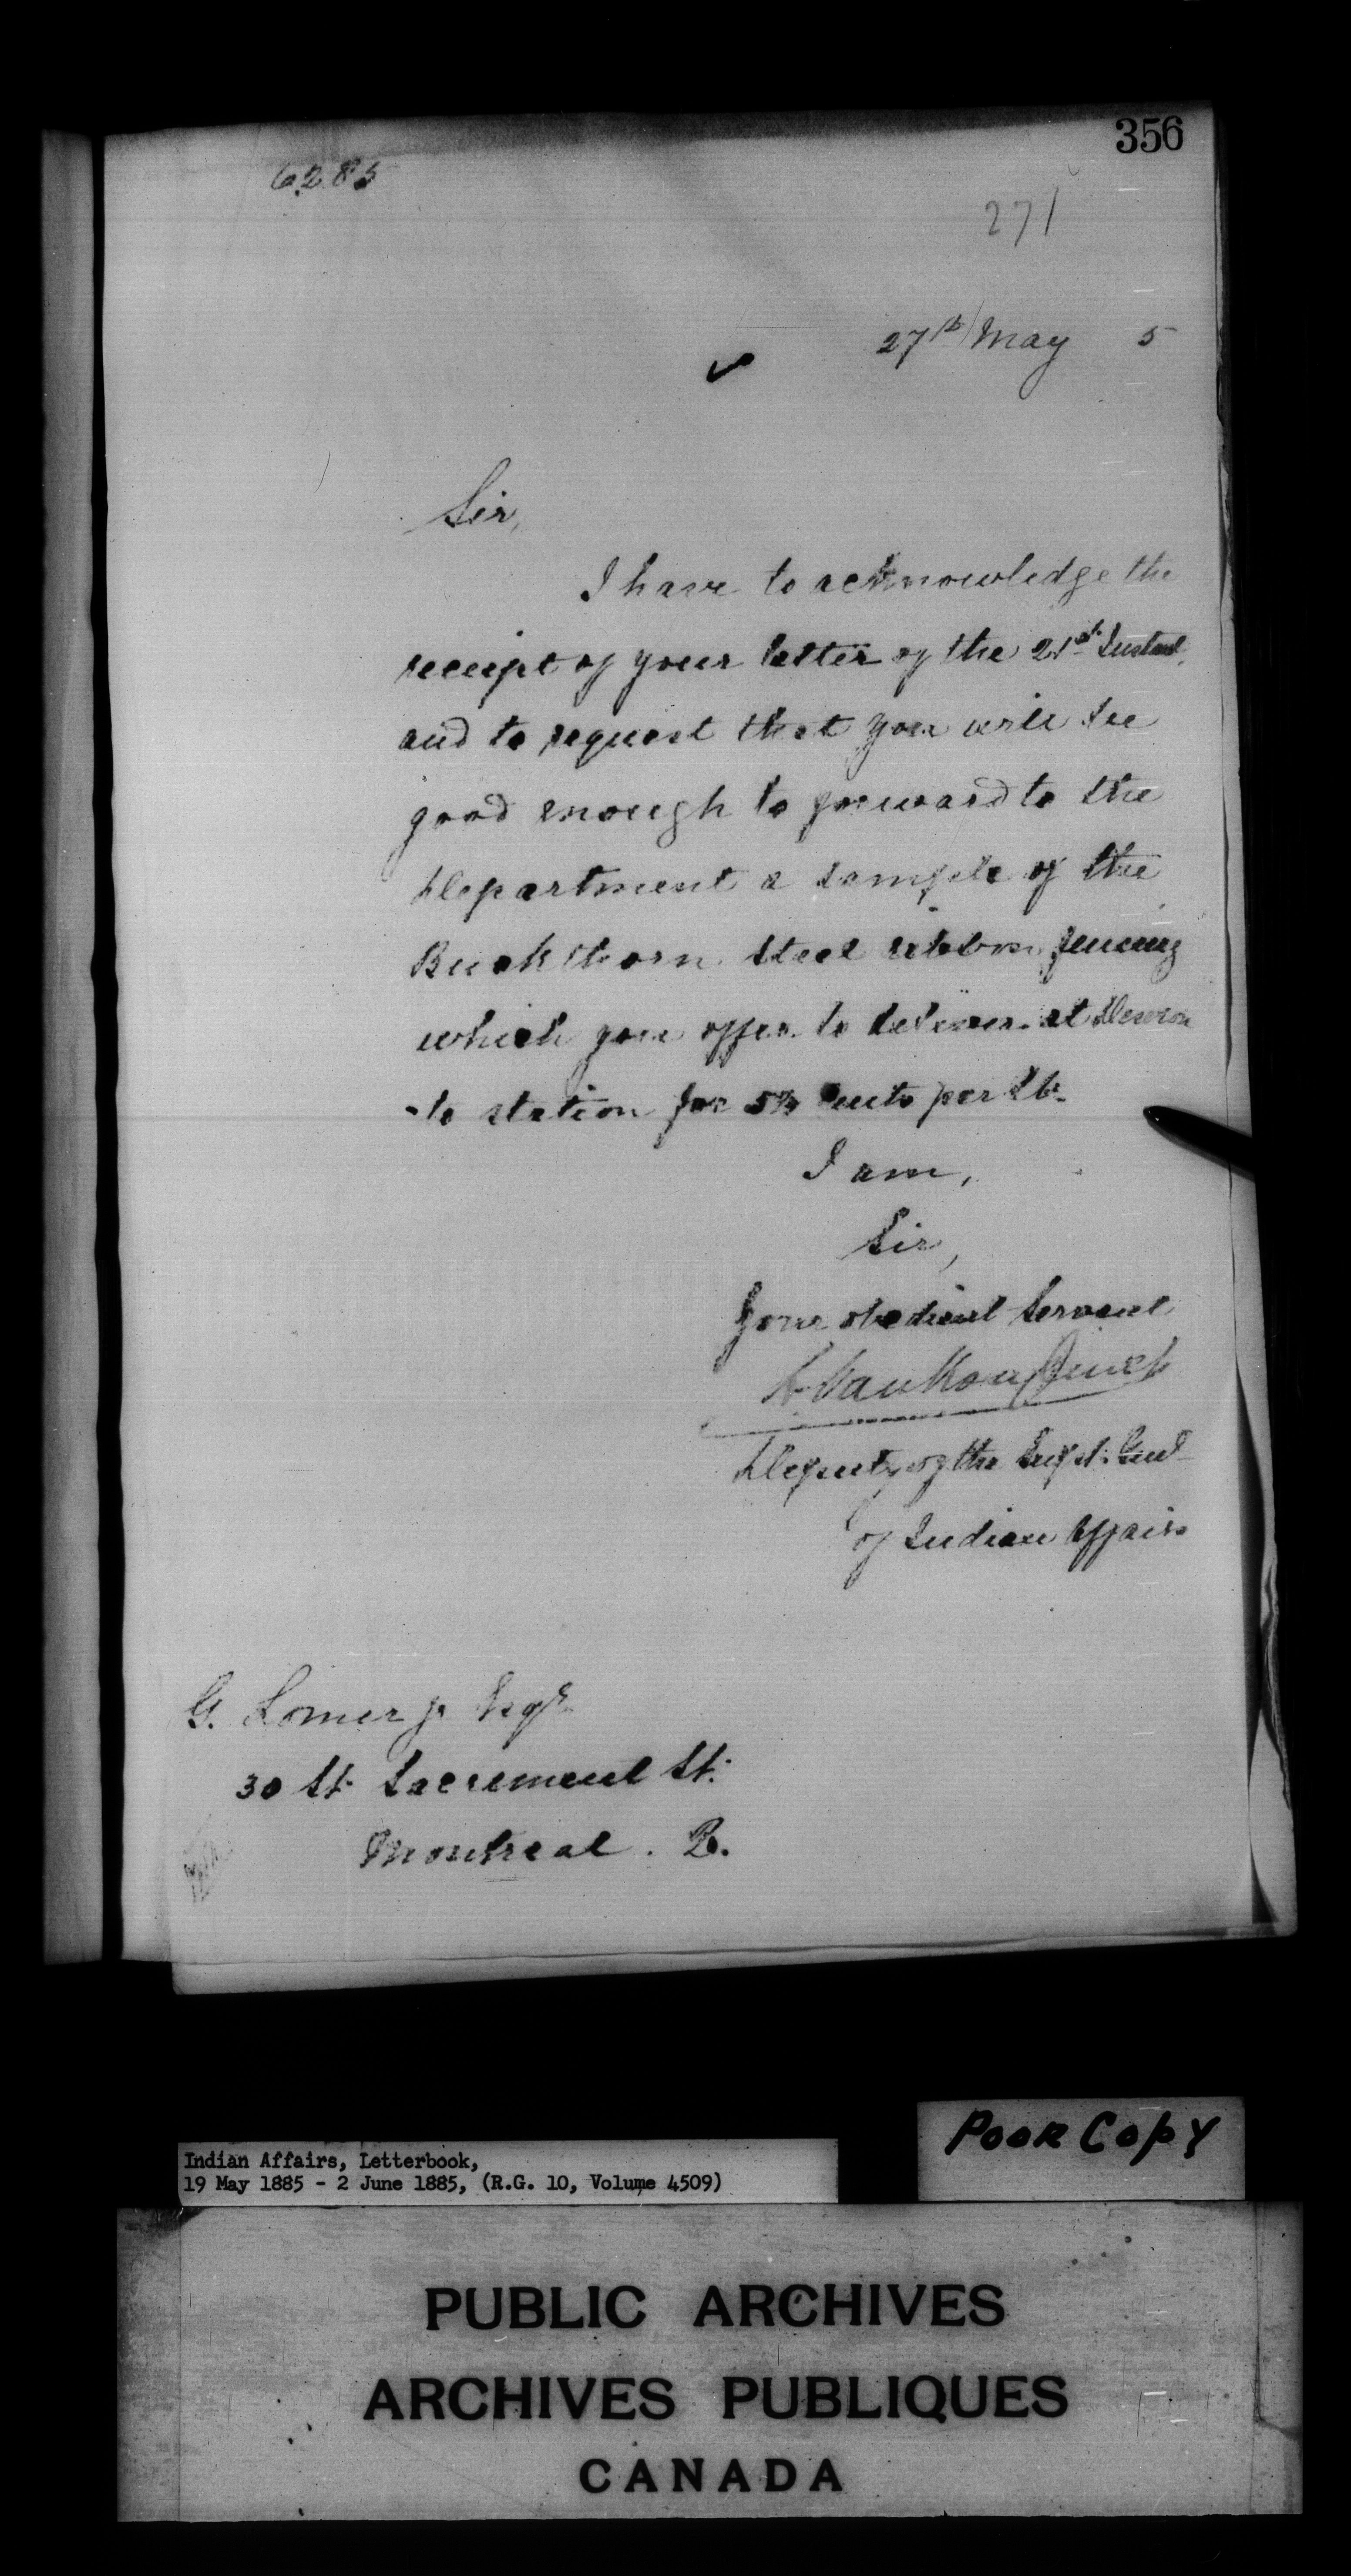 356
6285
271
27th May 5
Sir,
I have to acknowledge the
receipt of your letter of the 21st Instant,
and to request that you will be
good enough to forward to the
Department a sample of the
Buckthorn Steel ribbon fencing
which you offer to deliver at
to station for cents per lb.
I am,
Sir,
Your obedient Servant,
L. VanKoughnet
Deputy of the Supt: Genl
of Indian Affairs
G. Lomer jr Esqr
30 St. Sacrement St.
Montreal. Q.
Poor Copy
Indian Affairs, Letterbook,
19 May 1885 - 2 June 1885, (R.G. 10, Volume 4509)
PUBLIC ARCHIVES
ARCHIVES PUBLIQUES
CANADA